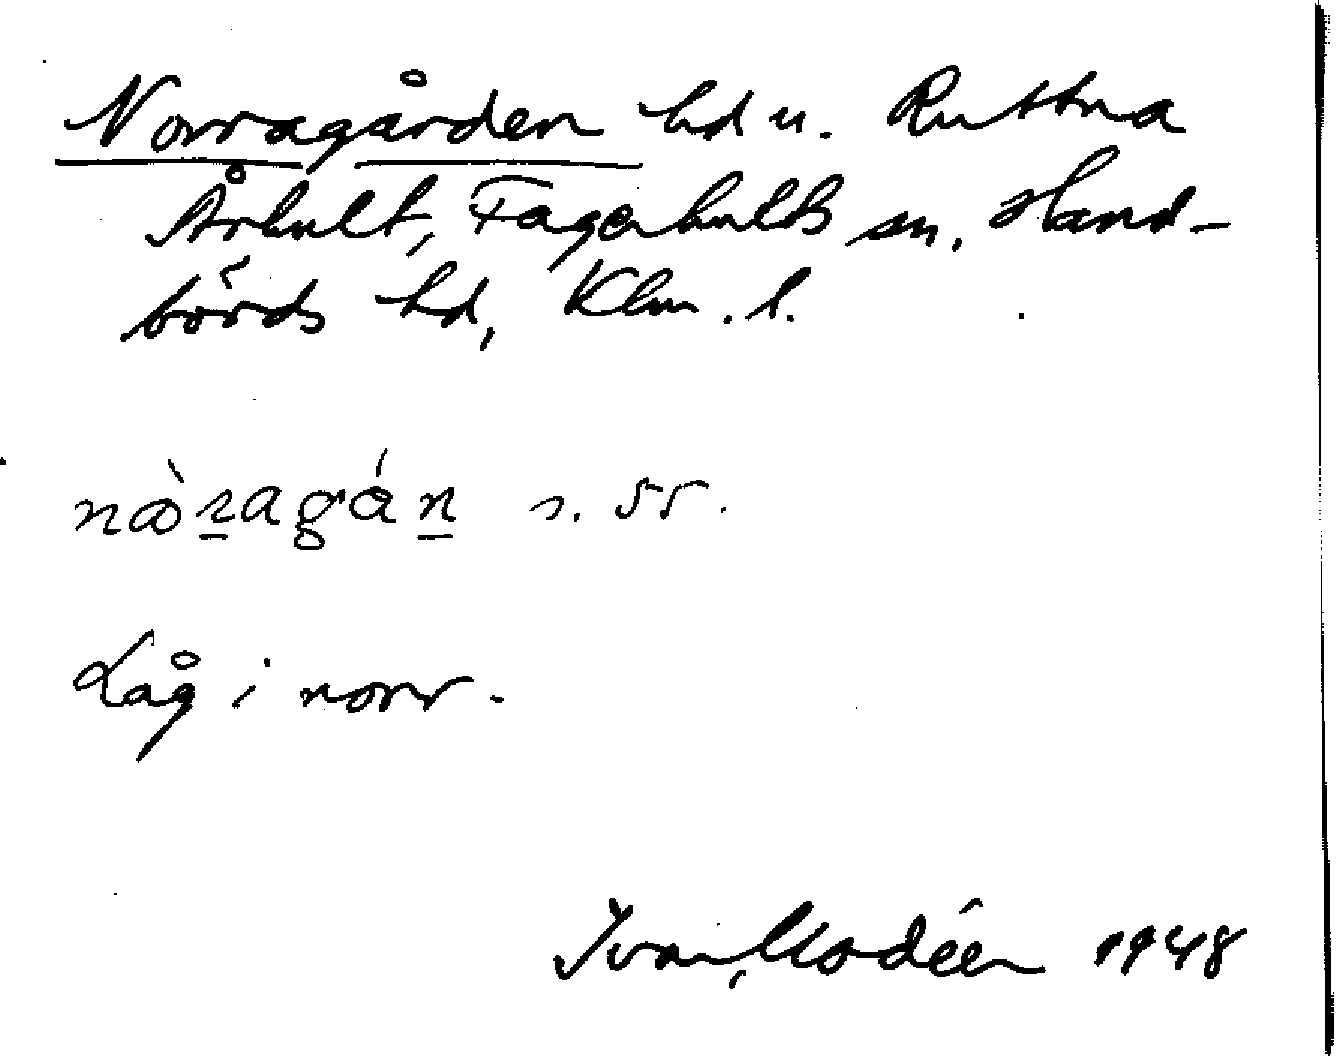 Norragården hd u. Ruttna
Århult, Fagerhults sn, Hand-
börds hd, Klm. l.
nòragán s. 55.
Låg i norr.
Ivar Modéer 1948